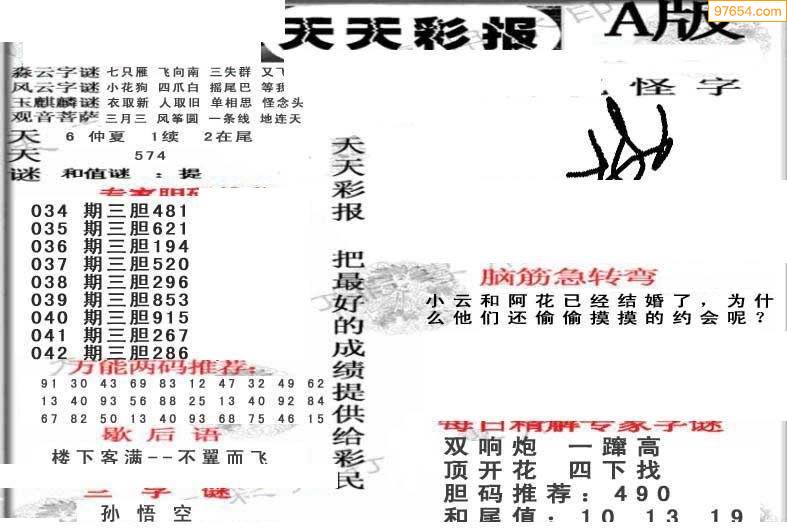 97654.com
天天彩报 A版
森云字谜 七只雁 飞向南 三失群 又飞
风云字谜 小花狗 四爪白 摇尾巴 等我
玉麒麟谜 衣取新 人取旧 单相思 怪念头
观音菩萨 三月三 风筝圆 一条线 地连天
天 6 仲夏 1续 2在尾
天 574
谜 和值谜 : 提
怪字
034 期三胆481
035 期三胆621
036 期三胆194
037 期三胆520
038 期三胆296
039 期三胆853
040 期三胆915
041 期三胆267
042 期三胆286
万能两码推荐:
91 30 43 69 83 12 47 32 49 62
13 40 93 56 88 25 13 40 92 84
67 82 50 13 40 93 68 75 46 15
歇后语
楼下客满--不翼而飞
三字谜
孙悟空
天天彩报 把最好的成绩提供给彩民
脑筋急转弯
小云和阿花已经结婚了，为什
么他们还偷偷摸摸的约会呢？
每日精解专家字谜
双响炮 一蹿高
顶开花 四下找
胆码推荐：490
和尾值：10 13 19